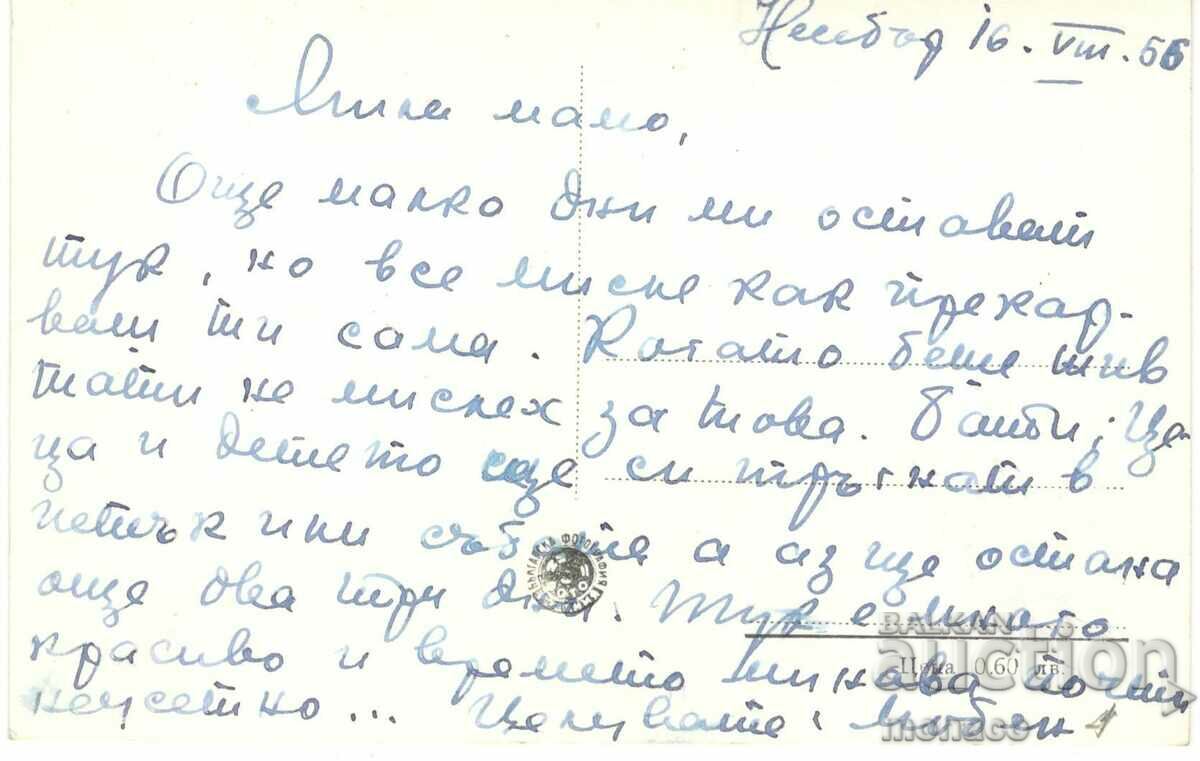 Несебър 16. VIII. 56
Мила мамо,
Още малко дни ми остават
тук, но все мисля как прекар-
ваш ти сама. Когато беше жив
тати не мислех за това. Батби, Це-
ца и детето ще си тръгнат в
петък или събота а аз ще остана
още два три дни. Тук е много
красиво и времето минава почти
неусетно... Целувате: Любен
БЪЛГАРСКА ФОТОГРАФИЯ
Цена 0.60 лв.
BALKAN
auction
monaco